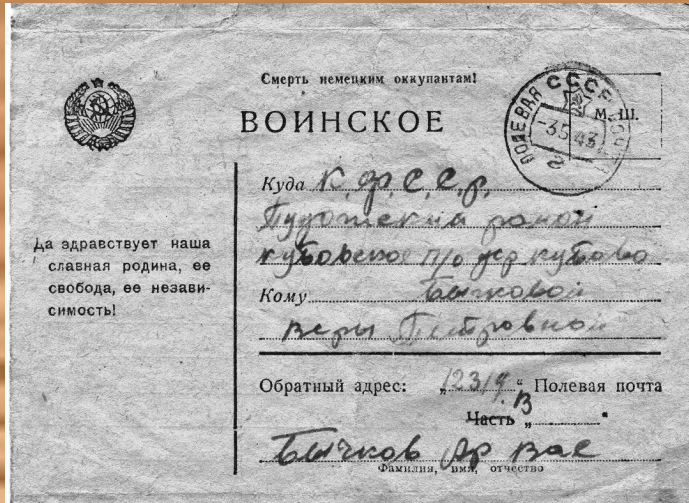 Смерть немецким оккупантам!
ВОИНСКОЕ
СССР
ПОЛЕВАЯ ПОЧТА
-3.5.43
г
М. Ш.
Да здравствует наша
славная родина, ее
свобода, ее незави-
симость!
Куда К. Ф. С. С. Р.
Пудожский район
Кубовское п/о дер Кубово
Кому Бычковой
Веры Петровной
Обратный адрес: „12319“ Полевая почта
Часть „В“
Бычков Ар Вас
Фамилия, имя, отчество